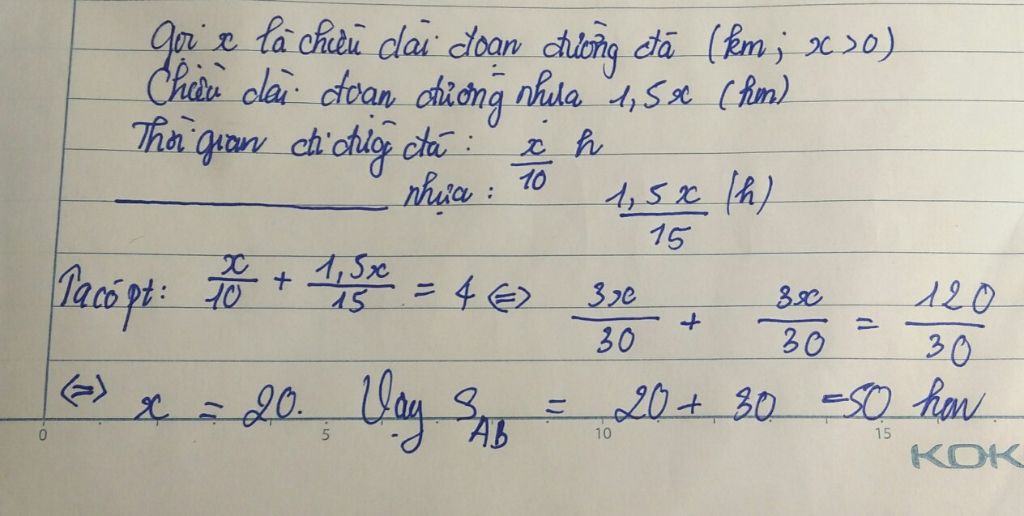 Gọi x là chiều dài đoạn đường đá (km; x>0)
Chiều dài đoạn đường nhựa 1,5x (km)
Thời gian đi đường đá : x/10 h
nhựa : 1,5x/15 (h)
Ta có pt: x/10 + 1,5x/15 = 4 <=> 3x/30 + 3x/30 = 120/30
<=> x = 20. Vậy S_AB = 20 + 30 = 50 km
0 5 10 15
KOK